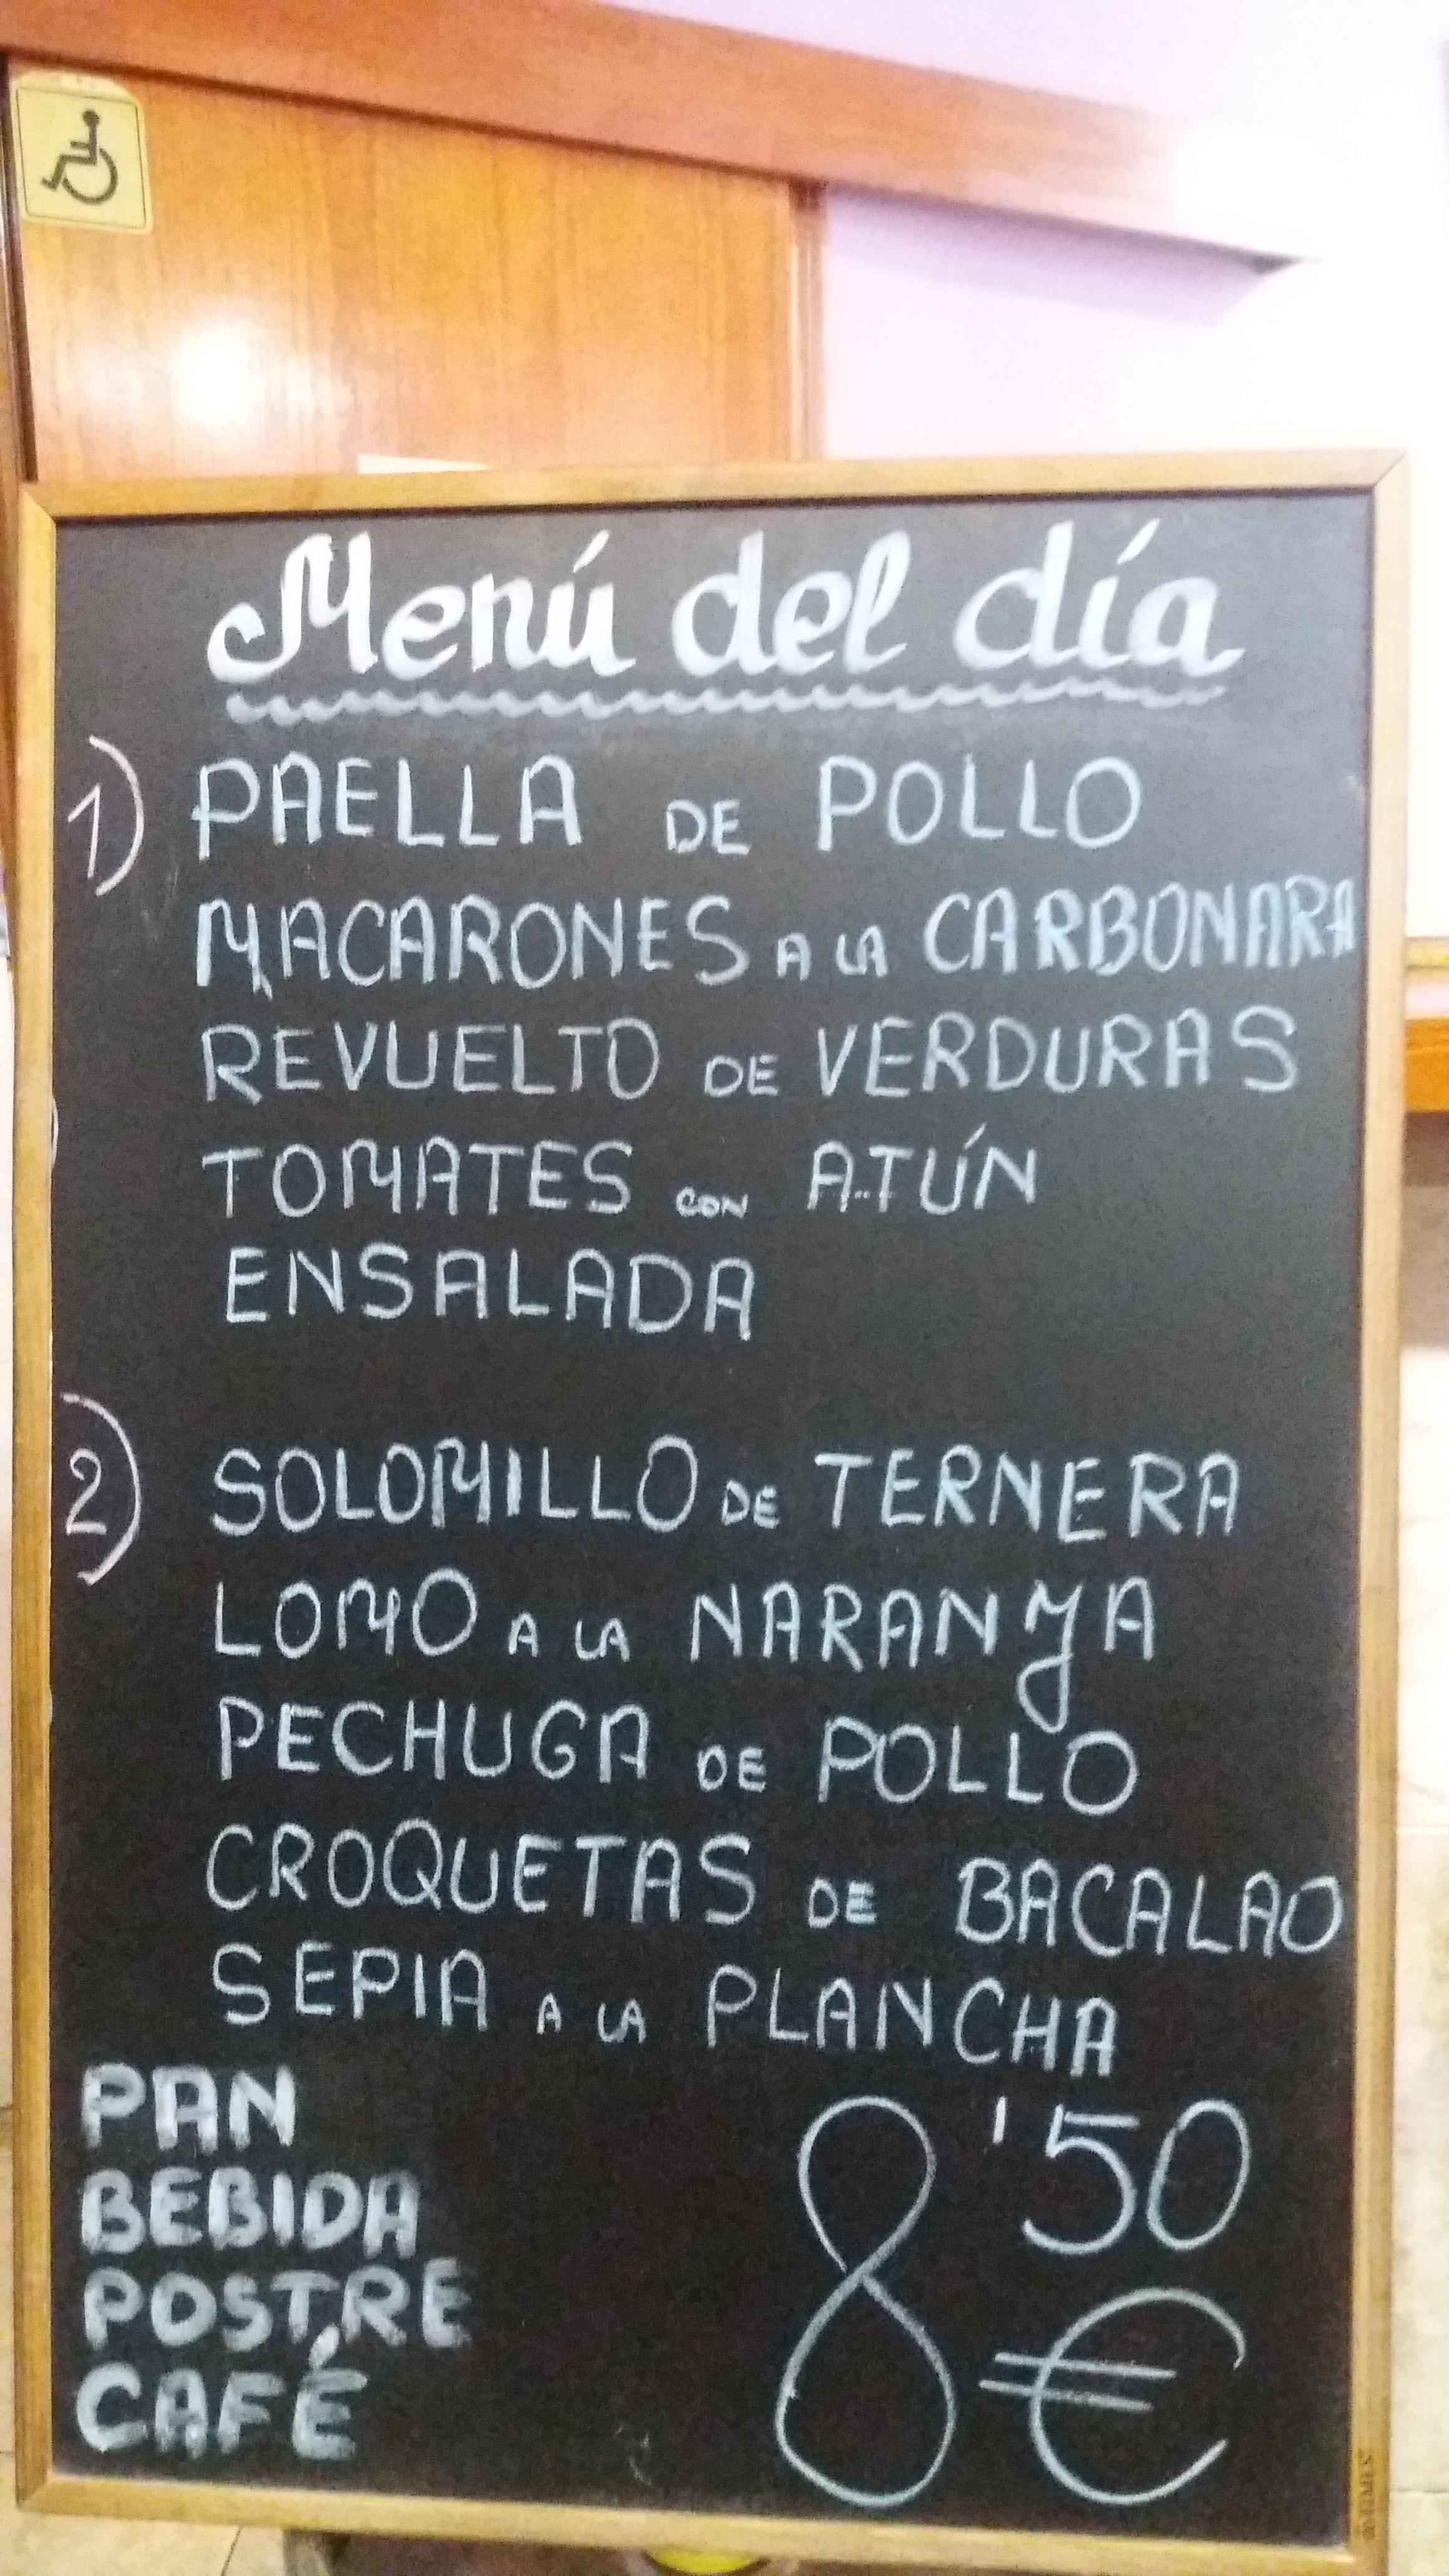 Menú del día
1) PAELLA DE POLLO
MACARONES A LA CARBONARA
REVUELTO DE VERDURAS
TOMATES CON ATÚN
ENSALADA
2) SOLOMILLO DE TERNERA
LOMO A LA NARANJA
PECHUGA DE POLLO
CROQUETAS DE BACALAO
SEPIA A LA PLANCHA
PAN
BEBIDA
POSTRE
CAFÉ
8'50 €